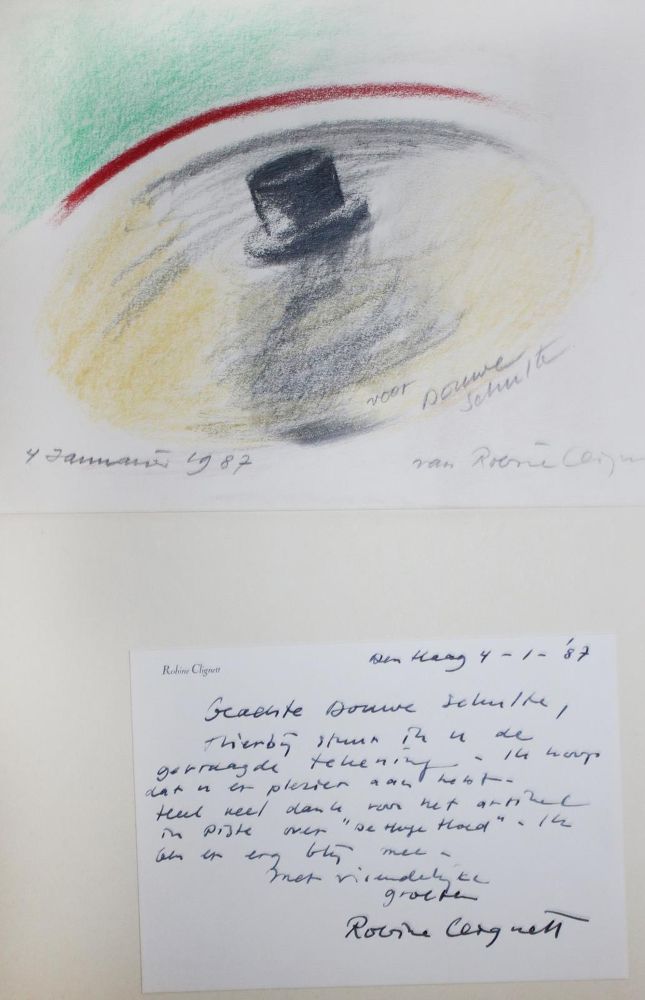 voor Douwe
Schulte
4 Januari 1987
van Robine Clign
Robine Clignett
Den Haag 4-1-'87
Geachte Douwe Schulte,
Hierbij stuur ik u de
gevraagde tekening - Ik hoop
dat u er plezier aan hebt -
Heel veel dank voor het artikel
in Piste over "De Hoge Hoed" - Ik
ben er erg blij mee -
Met vriendelijke
groeten
Robine Clignett